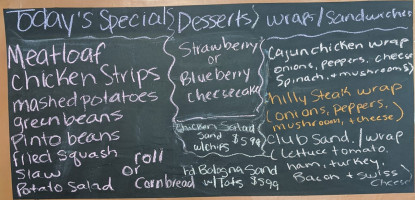 Today's Specials
Meatloaf
chicken Strips
mashed potatoes
green beans
pinto beans
fried squash
slaw
Potato Salad
roll
or
Cornbread
Desserts
Strawberry
or
Blueberry
cheesecake
Chicken Salad
Sand
w/chips $5.99
Fd Bologna Sand
w/Tots $5.99
wraps/Sandwiches
Cajun chicken wrap
(onions, peppers, cheese
Spinach, + mushrooms)
Philly Steak wrap
(onions, peppers,
mushroom, + cheese)
Club Sand. / wrap
(lettuce tomato,
ham, turkey,
Bacon + swiss
cheese)